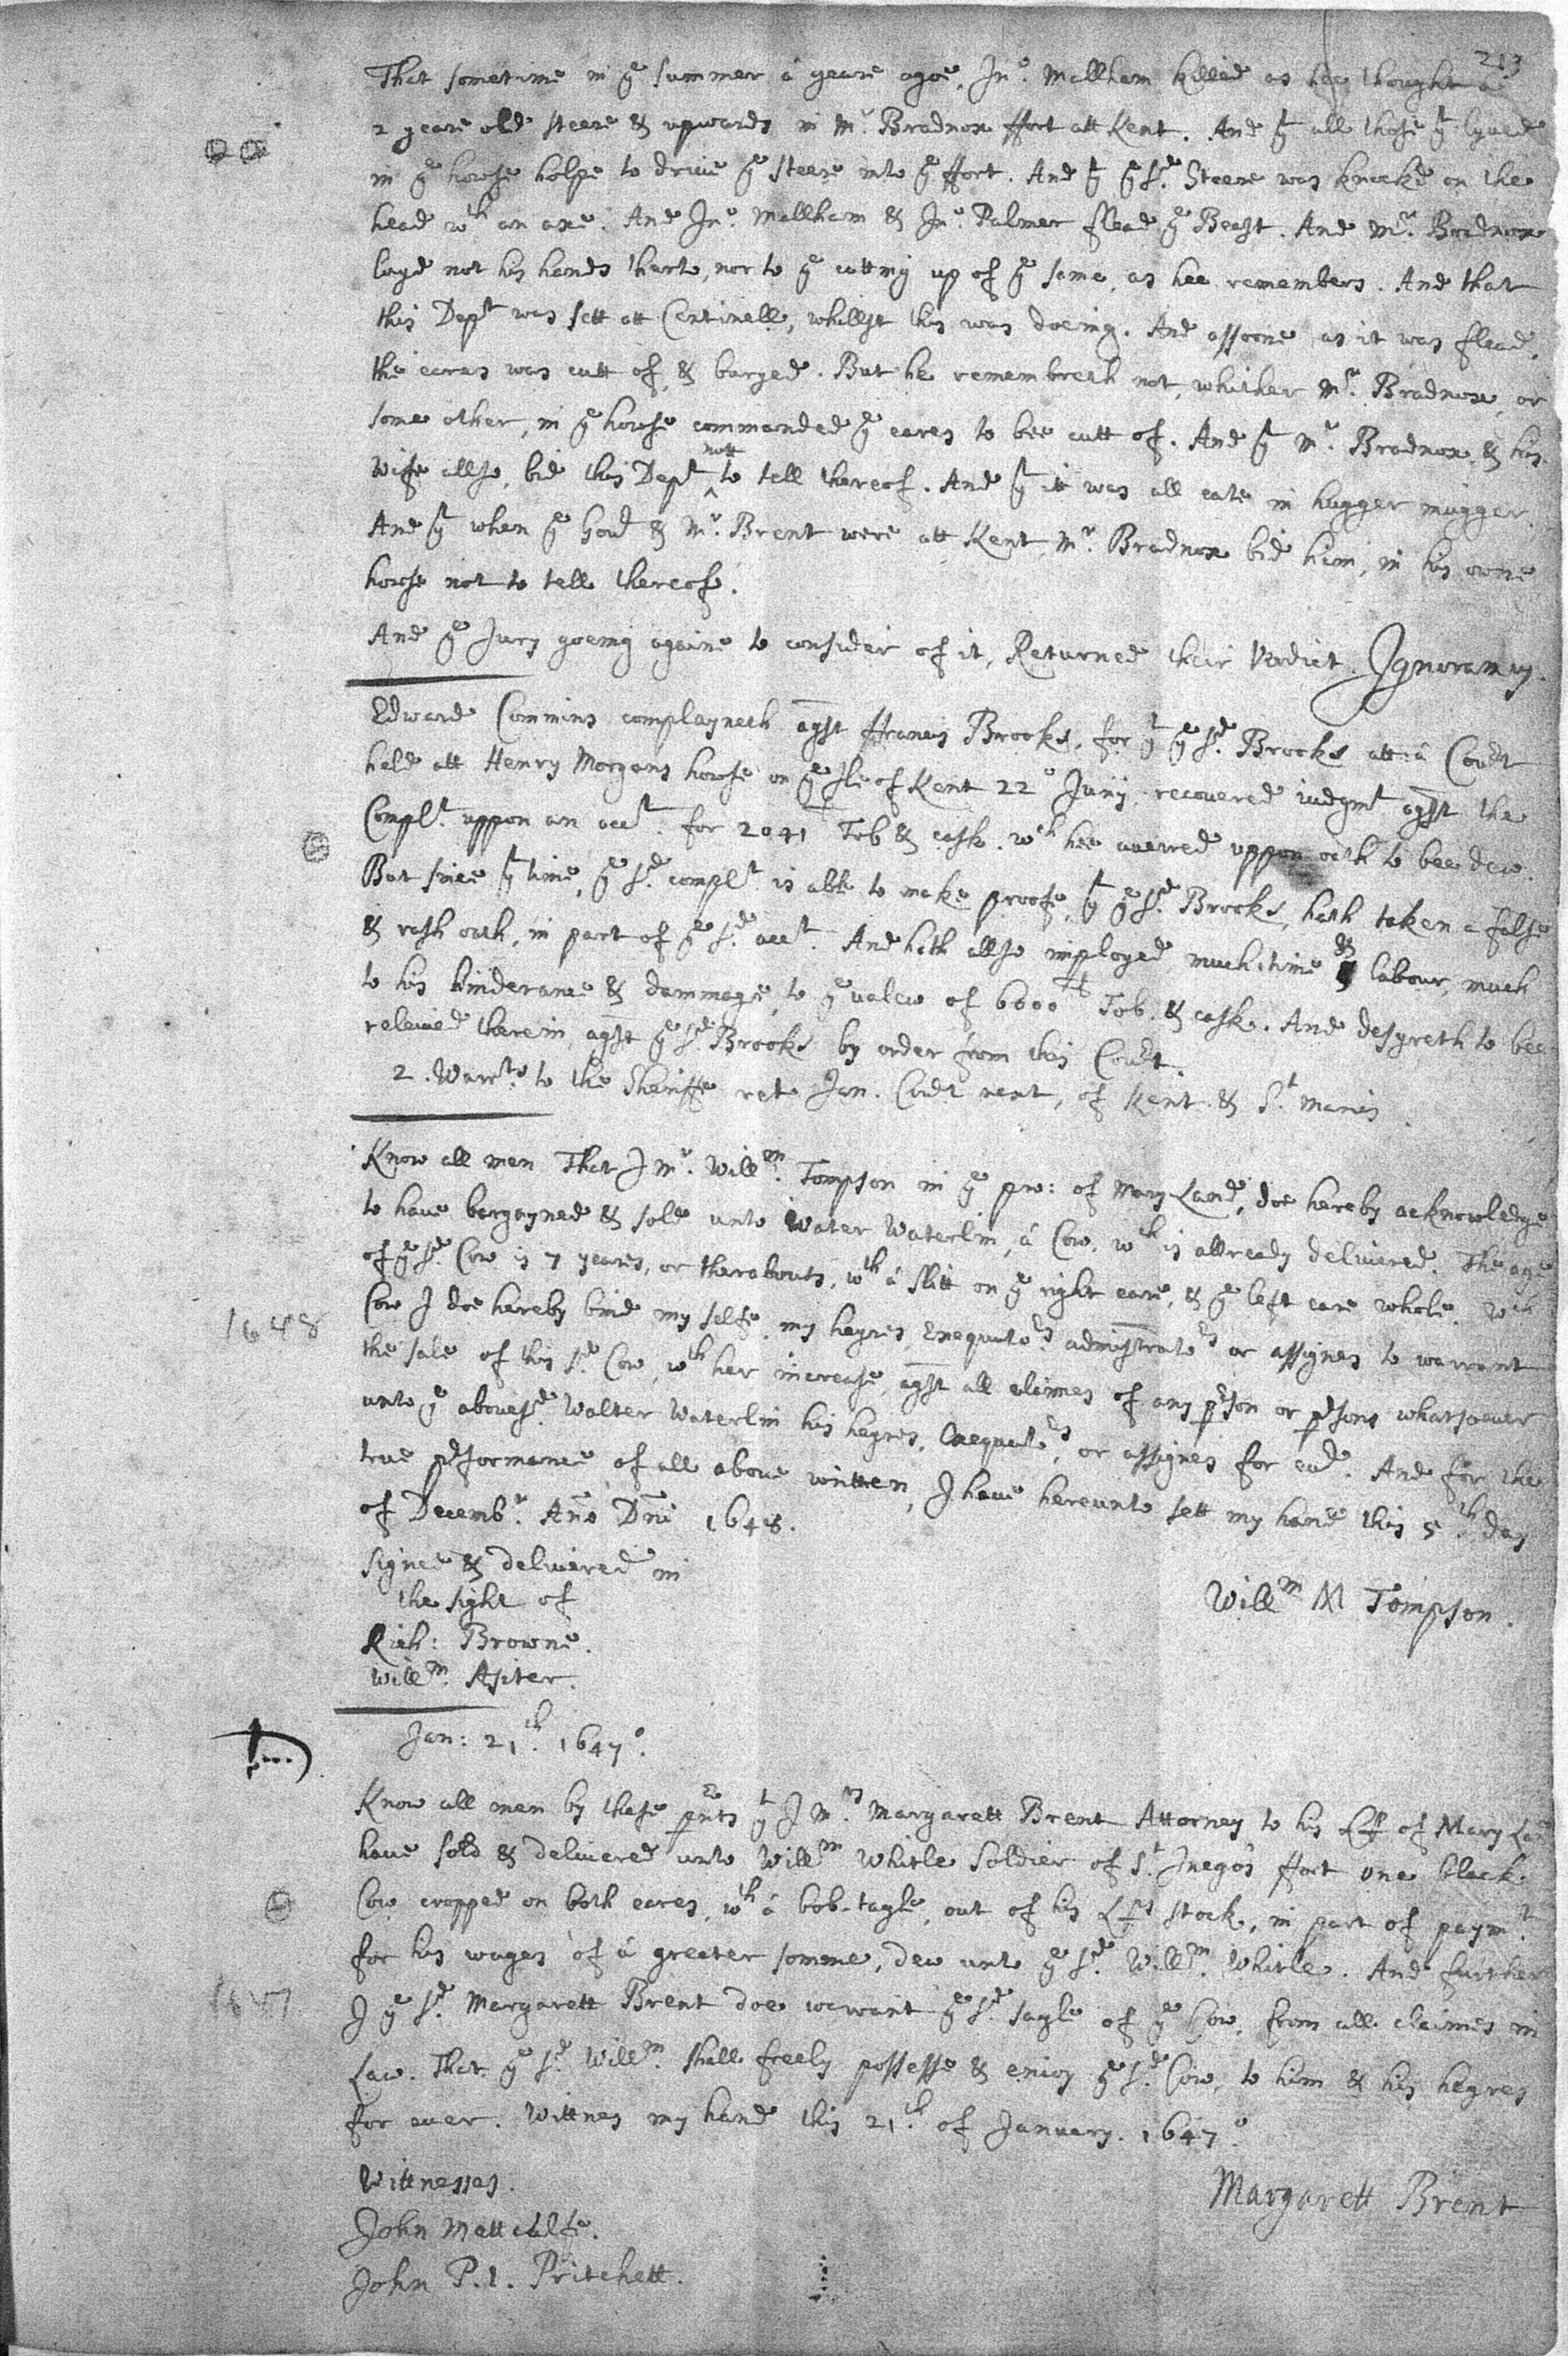 213
That sometime in ye summer a yeare agoe, Jno. Mallham killed as hee thought a
2 yeare old steere & upwards in Mr. Bradnox ffort att Kent. And yt all those yt lyued
in ye howse holpe to driue ye steere into ye ffort. And yt ye sd. Steere was knockd on the
head wth an axe. And Jno. Mallham & Jno. Palmer flead ye Beast. And Mr. Bradnox
layd not his hands therto, nor to ye cutting up of ye same, as hee remembers. And that
this Dept was sett att Centinell, whillst this was doeing. And assoone as it was flead,
the eares was cutt of, & buryed. But he remembreth not, whither Mr. Bradnox, or
some other, in ye howse commanded ye eares to bee cutt of. And yt Mr. Bradnox & his
Wife allso, bid this Dept nott to tell thereof. And yt itt was all eate in hugger mugger.
And yt when ye Gov & Mr. Brent were att Kent, Mr. Bradnox bid him, in his owne
howse not to tell thereof.
And ye Jury goeing againe to consider of it, Returned their Verdict. Ignoramus.
Edward Commins complayneth agst ffrancis Brooks, for yt ye sd. Brooks att a Court
held att Henry Morgans howse on ye Ile of Kent 22o Junij recouered iudgmt agst the
Complt. uppon an acct. for 2041 l Tob & cask. wch hee auerred uppon oath to bee dew.
But since yt time, ye sd complt is able to make proofe, yt ye sd. Brooks, hath taken a false
& rash oath, in part of ye sd. acct. And hath allso imployed much time & labour, much
to his hinderance & dammage, to ye valew of 6000 l Tob. & cask. And desyreth to bee
releiued therein, agst ye sd Brooks by order from this Court.
2. Warrts to the Sheriffe ret Jan. Court next, of Kent & St. Maries
Know all men That I Mr. Willm. Tompson in ye pro: of Mary Land, doe hereby acknowledge
to haue bargayned & sold unto Water Waterlin, a Cow, wch is allready deliuered. The age
of ye sd. Cow is 7 yeares, or therabouts, wth a slitt on ye right eare, & ye left eare whole. Wch
1648
Cow I doe hereby bind my selfe, my heyres, Exequutors administrators or assignes to warrant
the sale of this sd Cow, wth her increase, agst all claimes of any pson or psons whatsoeuer
unto ye abouesd. Walter Waterlin his heyres, Exequutors, or assignes for eud. And for the
true pformance of all aboue written, I haue hereunto sett my hand this 5th day
of Decembr. Ano Dni 1648.
Signed & deliuered in
the sight of
Willm M Tompson.
Rich: Browne.
Willm. Asiter.
Jan: 21th. 1647o.
Know all men by these pnts yt I Mrs Margarett Brent Attorney to his Lp of Mary Land
haue sold & deliuered unto Willm Whitle Soldier of St. Inego's ffort one black
Cow cropped on both eares, wth a bob-tayle, out of his Lps stock, in part of paymt
for his wages of a greater somme, dew unto ye sd. Willm. Whitle. And further
1647
I ye sd. Margarett Brent doe warrant ye sd. sayle of ye Cow, from all claimes in
Law. That ye sd. Willm. shall freely possesse & enioy ye sd. Cow, to him & his heyres
for euer. Wittnes my hand this 21th. of January. 1647o.
Wittnesses.
Margarett Brent
John Mettcalfe.
John P. I. Pritchett.